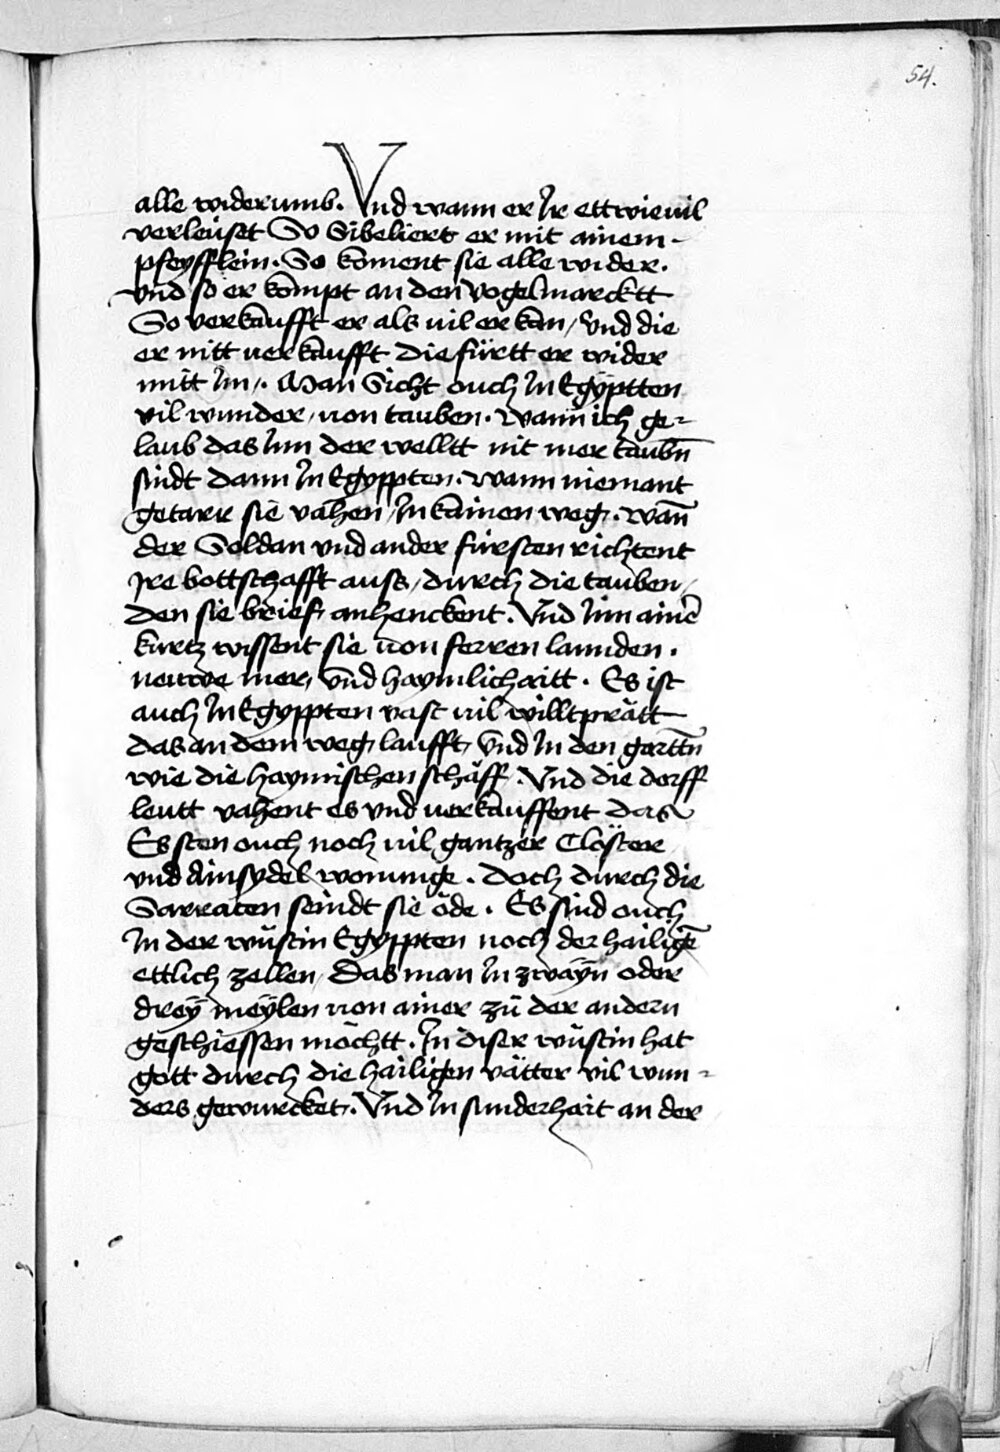 54.
alle widerumb. Vnd wann er Ir ettwie uil
verleüset So Sibeliert er mit ainem -
pfeyfflein. So koment sie alle wider.
vnd so er kompt an den vogelmarcktt
So verkaufft er als uil er kan / vnd die
er nitt uerkaufft die fürtt er wider
mitt Im /. Man Sicht ouch In Egÿptten
vil wunder / uon tauben. Wann ich ge=
laub das Inn der welltt nit mer taubn̄
sindt dann In Egyppten. Wann niemant
getarr sie vahen / In kainen weg. Wan̄
der Soldan vnd ander fürsten richtent
Ire bottschafft auss / durch die tauben /
den sie brief anhenckent. Vnd Inn ainē
kurtz wissent sie uon ferren lannden.
neuwe mer / vnd haymlichaitt. Es ist
auch In Egyppten vast uil willtprätt
das an dem weg laufft / vnd In den gartt̄n
wie die haymischen schäff. Vnd die dorff
leutt vahent es vnd uerkauffent das
Es sten ouch noch uil gantzer Clöster
vnd Ainsydel wonunge. Doch durch die
Sarraten seindt sie öde. Es sind ouch
In der wüstin Egyppten noch der hailigē
ettlich zellen / Das man In zwaÿn oder
dreÿ meÿlen uon ainer zü der andern
geschiessen möchtt. In diser wüstin hat
gott durch die hailigen vätter vil wun=
ders gewurcket. Vnd In sunderhait an der